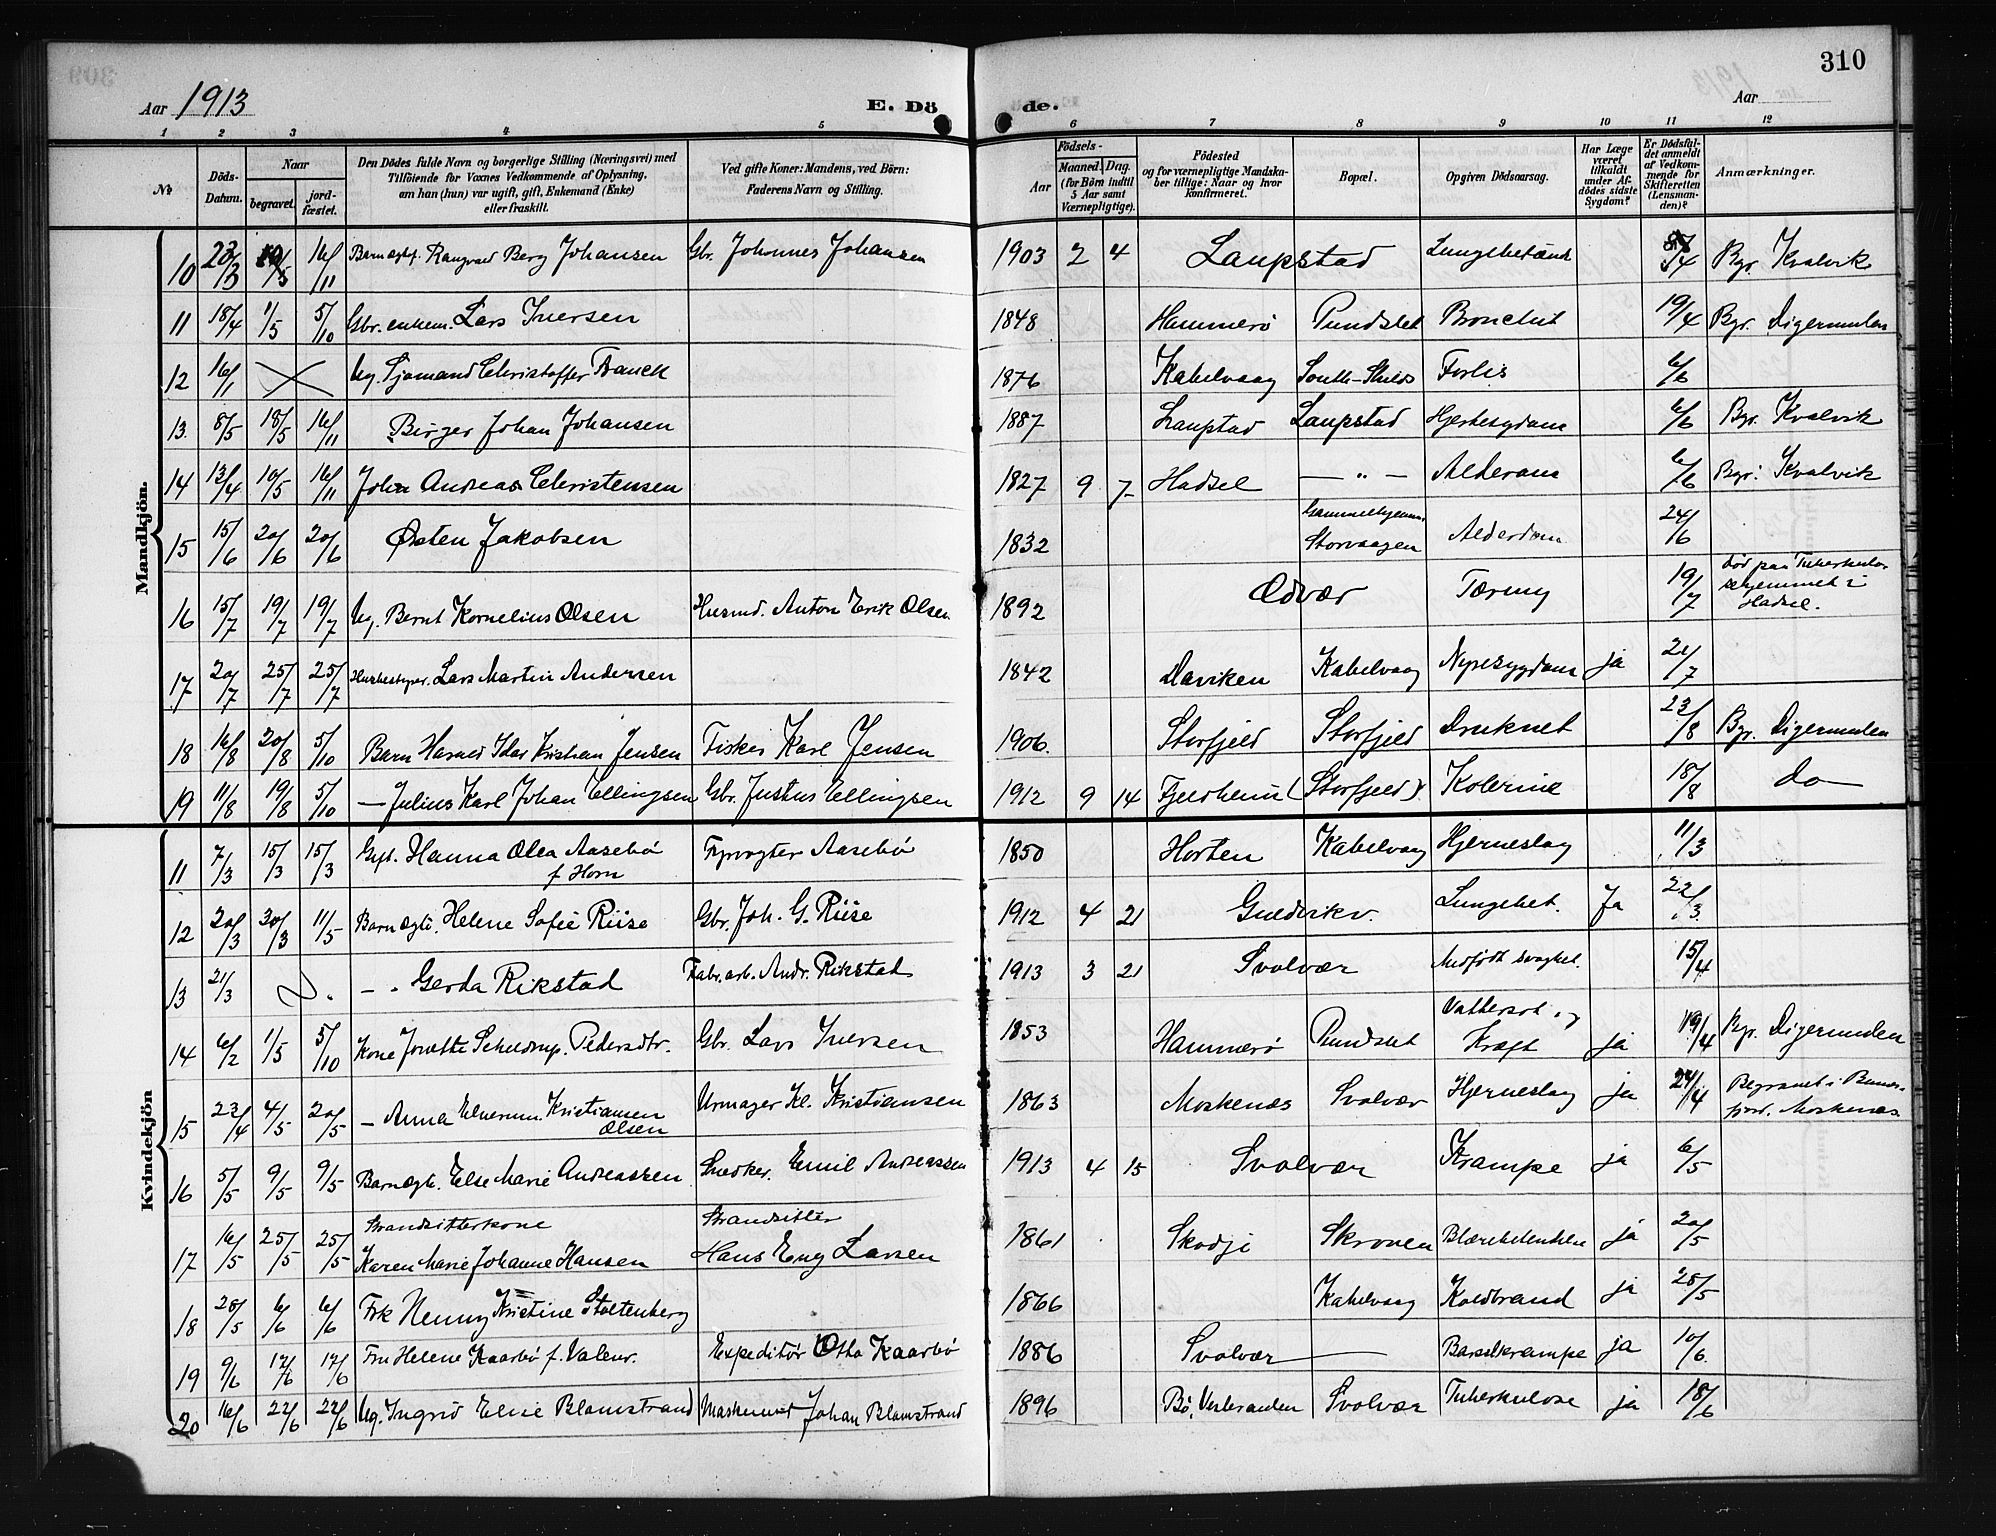 310
Aar 1913
E. Döde.
Aar
1 2 3 4 5 6 7 8 9 10 11 12
№
Döds-Datum.
Naar
begravet.
jord-fæstet.
Den Dödes fulde Navn og borgerlige Stilling (Næringsvei) med
Tilföiende for Voxnes Vedkommende af Oplysning,
om han (hun) var ugift, gift, Enkemand (Enke)
eller fraskilt.
Ved gifte Koner: Mandens, ved Börn:
Faderens Navn og Stilling.
Födsels-
Aar
Maaned. Dag.
(for Börn indtil
5 Aar samt
Værnepligtige).
Födested
og for værnepligtige Mandska-
ber tillige: Naar og hvor
konfirmeret.
Bopæl.
Opgiven Dödsaarsag.
Har Læge
været
tilkaldt
under Af-
dödes sidste
Sygdom?
Er Dödsfal-
det anmeldt
af Vedkom-
mende for
Skifteretten
(Lensman-
den)?
Anmærkninger.
Mandkjön.
10 20/3 10/5 16/11 Barn ægtef. Rangvald Berg Johansen Gbr. Johannes Johansen 1903 2 4 Laupstad Lungebetænd Bgr. Kvalvik
11 18/4 1/5 5/10 Gbr. enkem. Lars Iversen 1848 Hammerö Pundslet Bronchit 19/4 Bgr. Digermulen
12 16/1 Ug. Sjømand Christoffer Franck 1876 Kabelvaag South-Shields Forlis 6/6
13 8/5 18/5 16/11 Birger Johan Johansen 1887 Laupstad Laupstad Hjertesygdom 6/6 Bgr. Kvalvik
14 13/4 10/5 16/11 Johan Andreas Christensen 1827 9 7 Hadsel — „ — Alderdom 6/6 Bgr. Kvalvik
15 15/6 20/6 20/6 Østen Jakobsen 1832 Gammelhjemm. Storvaagen Alderdom 24/6
16 15/7 19/7 19/7 Ug. Bernt Kornelius Olsen Husmd. Anton Erik Olsen 1892 Ødvær Tæring 19/7 død paa Tuberkulosehjemmet i Hadsel.
17 20/7 25/7 25/7 Lars Martin Andersen 1842 Daviken Kabelvaag Nyresygdom ja 21/7
18 16/8 20/8 5/10 Barn Harald Idar Kristian Jensen Fisker Karl Jensen 1906 Storfjeld Storfjeld Druknet 23/8 Bgr. Digermulen
19 11/8 19/8 5/10 — Julius Karl Johan Ellingsen Gbr. Justus Ellingsen 1912 9 14 Fjeldheim (Storfjeld) Kolerine 18/8 do —
Kvindekjön
11 7/3 15/3 15/3 Gift. Hanna Olea Aasebø f. Horn Fyrvogter Aasebø 1850 Horten Kabelvaag Hjerneslag 11/3
12 20/3 30/3 11/5 Barn ægte. Helene Sofie Riise Gbr. Joh. G. Riise 1912 4 21 Guldvikv. Lungebet. Ja 22/3
13 21/3 — „ Gerda Rikstad Fabr. arb. Andr. Rikstad 1913 3 21 Svolvær Medfødt svaghet. 15/4
14 6/2 1/5 5/10 Kone Jonette Scheldrup. Pedersdtr. Gbr. Lars Iversen 1853 Hammerø Pundslet Vattersot og Kræft ja 19/4 Bgr. Digermulen
15 22/4 4/5 20/5 — Anna Kristiansen Olsen Urmager Kl. Kristiansen 1863 Moskenæs Svolvær Hjerneslag ja 24/4 Begravet i Moskenæs
16 5/5 9/5 9/5 Barn ægte. Else Marie Andreassen Snedker. Emil Andreassen 1913 4 15 Svolvær Krampe ja 6/5
17 16/5 25/5 25/5 Strandsitterkone Karen Marie Johanne Hansen Strandsitter Hans Eng Larsen 1861 Skodje Skroven ja 20/5
18 25/5 6/6 6/6 Frk Henny Kristine Stoltenberg 1866 Kabelvaag Koldbrand ja 25/5
19 9/6 17/6 17/6 Fru Helene Kaarbø f. Valeur. Expeditør Otto Kaarbø 1886 Svolvær — Barselkrampe ja 10/6
20 16/6 22/6 22/6 Ug. Ingrid Elvie Blomstrand Maskinist Johan Blomstrand 1896 Bø, Vesteraalen Svolvær Tuberkulose ja 18/6